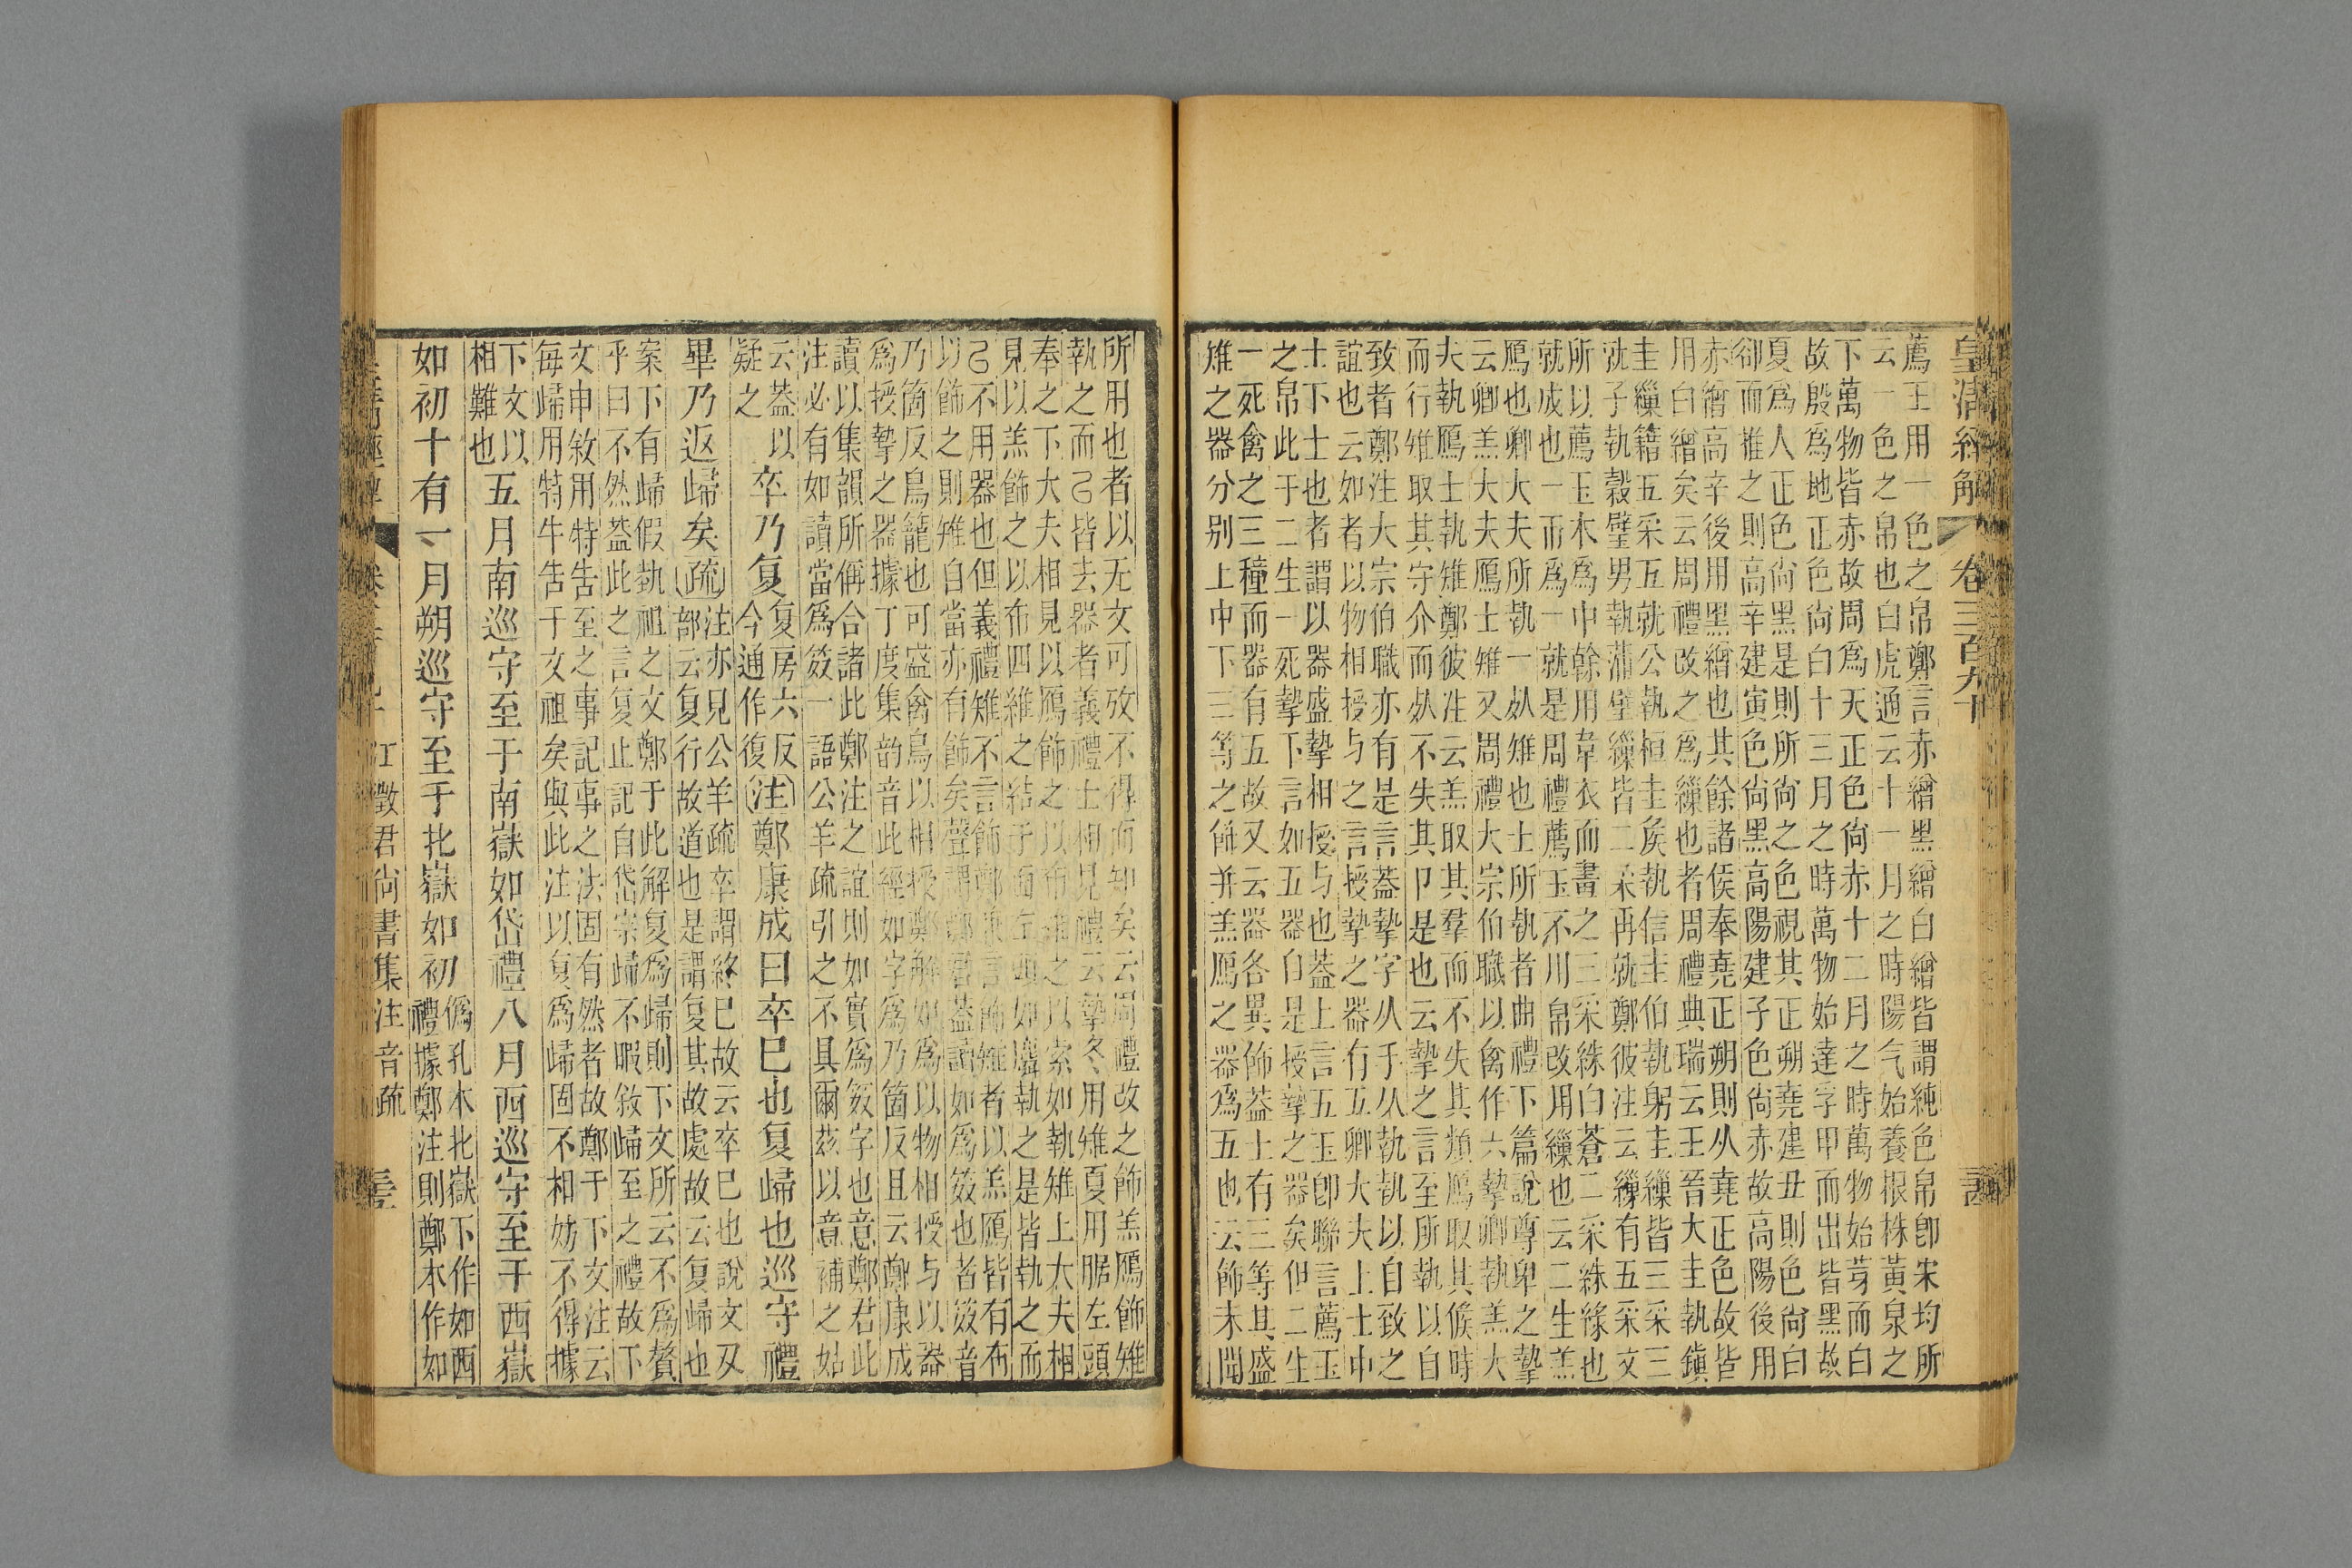 皇清經解
卷三百九十
薦玉用一色之帛鄭言赤繒黑繒白繒皆謂純色帛卽宋均所
云一色之帛也白虎通云十一月之時陽气始養根株黃泉之
下萬物皆赤故周爲天正色尙赤十二月之時萬物始芽而白
故殷爲地正色尙白十三月之時萬物始達孚甲而出皆黑故
夏爲人正色尙黑是則所尙之色視其正朔堯建丑則色尙白
卻而推之則高辛建寅色尙黑高陽建子色尙赤故高陽後用
赤繒高辛後用黑繒也其餘諸侯奉堯正朔則从堯正色故皆
用白繒矣云周禮改之爲繅也者周禮典瑞云王晉大圭執鎮
圭繅藉五采五就公執桓圭侯執信圭伯執躬圭繅皆三采三
就子執穀璧男執蒲璧繅皆二采再就鄭彼注云繅有五采文
所以薦玉木爲中榦用韋衣而畫之三采絑白蒼二采絑綠也
就成也一帀爲一就是周禮薦玉不用帛改用繅也云二生羔
鴈也卿大夫所執一𣦸雉也士所執者曲禮下篇說尊卑之摯
云卿羔大夫鴈士雉又周禮大宗伯職以禽作六摯卿執羔大
夫執鴈士執雉鄭彼注云羔取其羣而不失其類鴈取其候時
而行雉取其守介而𣦸不失其卩是也云摯之言至所執以自
致者鄭注大宗伯職亦有是言葢摯字从手从執執以自致之
誼也云如者以物相授与之言授摯之器有五卿大夫上士中
士下士也者謂以器盛摯相授与也葢上言五玉卽聯言薦玉
之帛此于二生一死摯下言如五器白是授摯之器矣但二生
一死禽之三種而器有五故又云器各異飾葢上有三等其盛
雉之器分别上中下三等之飾并羔鴈之器爲五也云飾未聞
所用也者以无文可攷不得而知矣云周禮改之飾羔鴈飾雉
執之而已皆去器者義禮士相見禮云摯冬用雉夏用腒左頭
奉之下大夫相見以鴈飾之以布維之以索如執雉上大夫相
見以羔飾之以布四維之結于面左頭如麛執之是皆執之而
已不用器也但義禮雉不言飾鄭兼言飾雉者以羔鴈皆有布
以飾之則雉自當亦有飾矣聲謂鄭君葢讀如爲笯也者笯音
乃箇反鳥籠也可盛禽鳥以相授鄭解如爲以物相授与以器
爲授摯之器據丁度集韵音此經如字爲乃箇反且云鄭康成
讀以集韻所偁合諸此鄭注之誼則如實爲笯字也意鄭君此
注必有如讀當爲笯一語公羊疏引之不具爾茲以意補之姑
云葢以
疑之
卒乃复
复房六反
今通作復
注鄭康成曰卒巳也复歸也巡守禮
畢乃返歸矣疏
注亦見公羊疏卒謂終巳故云卒巳也說文夂
部云复行故道也是謂复其故處故云复歸也
案下有歸假埶祖之文鄭于此解复爲歸則下文所云不爲贅
乎曰不然葢此之言复止記自岱宗歸不暇敘歸至之禮故下
文申敘用特告至之事記事之法固有然者故鄭于下文注云
每歸用特牛告于文祖矣與此注以复爲歸固不相妨不得據
下文以
相難也
五月南巡守至于南嶽如岱禮八月西巡守至于西嶽
如初十有一月朔巡守至于北嶽如初
僞孔本北嶽下作如西
禮據鄭注則鄭本作如
江徵君尙書集注音疏